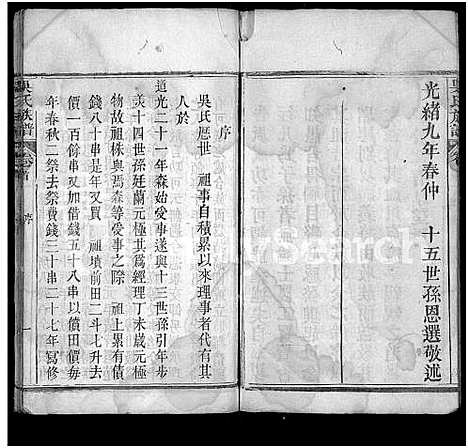 光緒九年春仲　十五世孫恩選敬述
吳氏族譜
序
吳氏歷世　祖事自積累以來理事者代有其
人於
道光二十一年森始受事遂與十三世孫引年步
美十四世孫廷蘭元極其爲經理丁未歲元極
物故祖株與焉森等受事之際　祖上累有債
錢八十串是年又買　祖墳前田二斗七升去
價一百餘串又加借錢五十八串以價田價每
年春秋二祭去祭費錢三十串二十七年寫修
吳氏族譜
卷首
序
一
MySearch